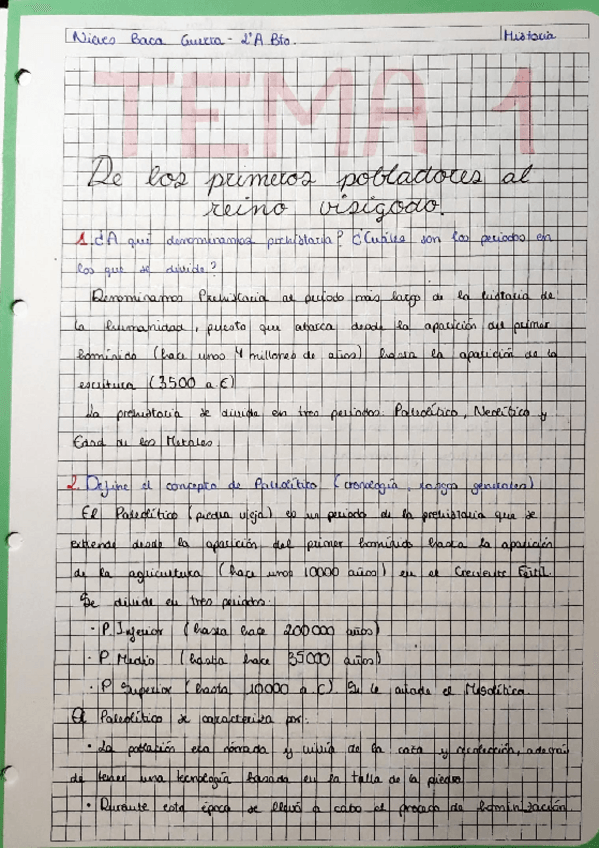 Nieves Baca Guerra - 2ºA Bto.
Historia
TEMA 1
De los primeros pobladores al
reino visigodo.
1. ¿A qué denominamos prehistoria? ¿Cuáles son los periodos en
los que se divide?
Denominamos Prehistoria al período más largo de la historia de
la humanidad, puesto que abarca desde la aparición del primer
homínido (hace unos 4 millones de años) hasta la aparición de la
escritura (3500 a.C)
La prehistoria se divide en tres periodos: Paleolítico, Neolítico y
Edad de los Metales.
2. Define el concepto de Paleolítico (cronología, rasgos generales)
El Paleolítico (piedra vieja) es un periodo de la prehistoria que se
extiende desde la aparición del primer homínido hasta la aparición
de la agricultura (hace unos 10000 años) en el Creciente Fértil.
Se divide en tres periodos:
· P. Inferior (hasta hace 200000 años)
· P. Medio (hasta hace 35000 años)
· P. Superior (hasta 10000 a C). Se le añade el Mesolítico.
El Paleolítico se caracteriza por:
· La población era nómada y vivía de la caza y recolección, además
de tener una tecnología basada en la talla de la piedra
· Durante esta época se llevó a cabo el proceso de hominización.